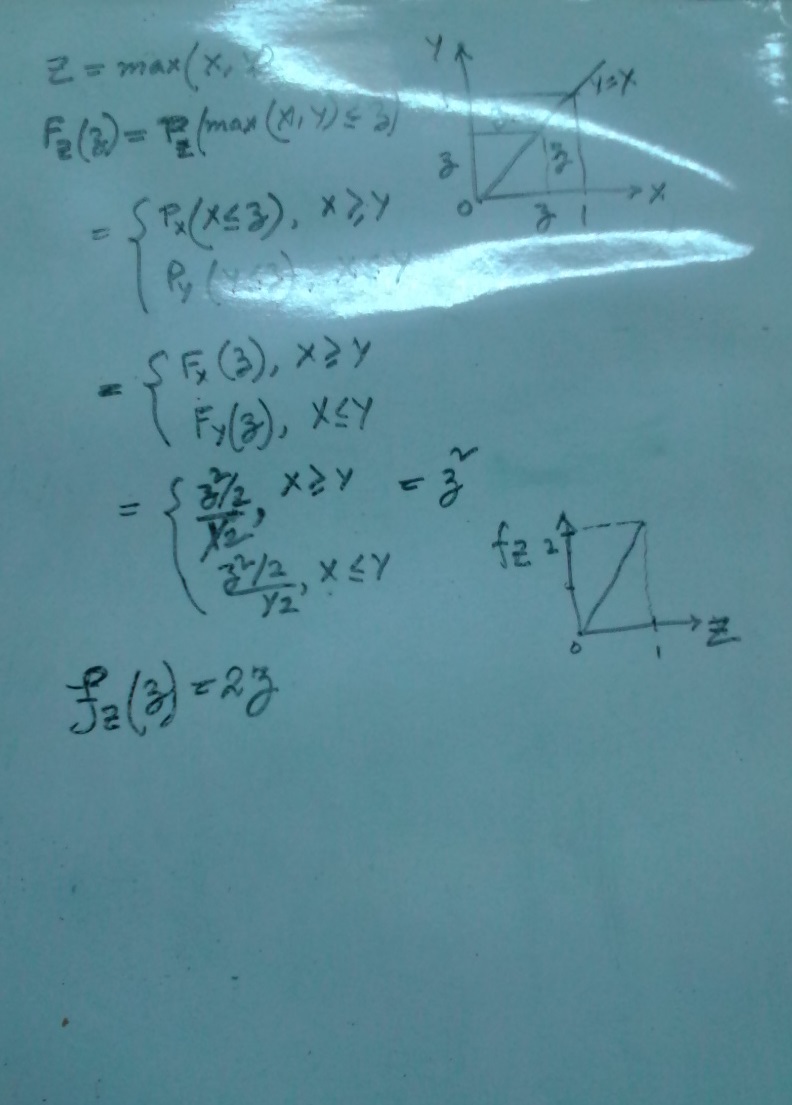 Z = max(X, Y
F_Z(z) = P_Z(max(X, Y) ≤ z)
= { P_X(X ≤ z), X ≥ Y
P_Y(Y ≤ z), X ≤ Y
= { F_X(z), X ≥ Y
F_Y(z), X ≤ Y
= { (z²/2)/(1/2), X ≥ Y = z²
(z²/2)/(1/2), X ≤ Y
f_Z(z) = 2z
Y
Y=X
z
z
0
z
1
X
f_Z
2
0
1
Z